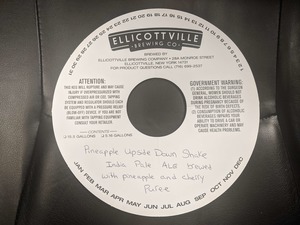 ELLICOTTVILLE
BREWING CO.
BREWED BY
ELLICOTTVILLE BREWING COMPANY • 28A MONROE STREET
ELLICOTTVILLE, NEW YORK 14731
FOR PRODUCT QUESTIONS CALL (716) 699-2537
ATTENTION:
THIS KEG MAY RUPTURE AND MAY CAUSE
INJURY IF OVERPRESSURIZED WITH
COMPRESSED AIR OR GAS. TAPPING
SYSTEM AND REGULATORS SHOULD EACH
BE EQUIPPED WITH A PRESSURE RELIEF
DEVICE. IF YOU ARE
NOT FAMILIAR WITH TAPPING EQUIPMENT
CONSULT YOUR RETAILER.
GOVERNMENT WARNING:
(1) ACCORDING TO THE SURGEON
GENERAL, WOMEN SHOULD NOT
DRINK ALCOHOLIC BEVERAGES
DURING PREGNANCY BECAUSE OF
THE RISK OF BIRTH DEFECTS. (2)
CONSUMPTION OF ALCOHOLIC
BEVERAGES IMPAIRS YOUR
ABILITY TO DRIVE A CAR OR
OPERATE MACHINERY AND MAY
CAUSE HEALTH PROBLEMS.
CONTENTS
15.5 GALLONS 5.16 GALLONS
Pineapple Upside Down Shake
India Pale Ale Brewed
with pineapple and cherry
Puree
JAN FEB MAR APR MAY JUN JUL AUG SEP OCT NOV DEC